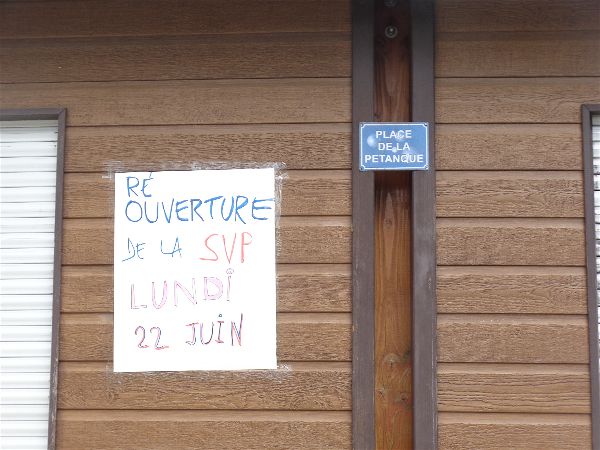 RÉ
OUVERTURE
DE LA SVP
LUNDI
22 JUIN
PLACE
DE LA
PETANQUE